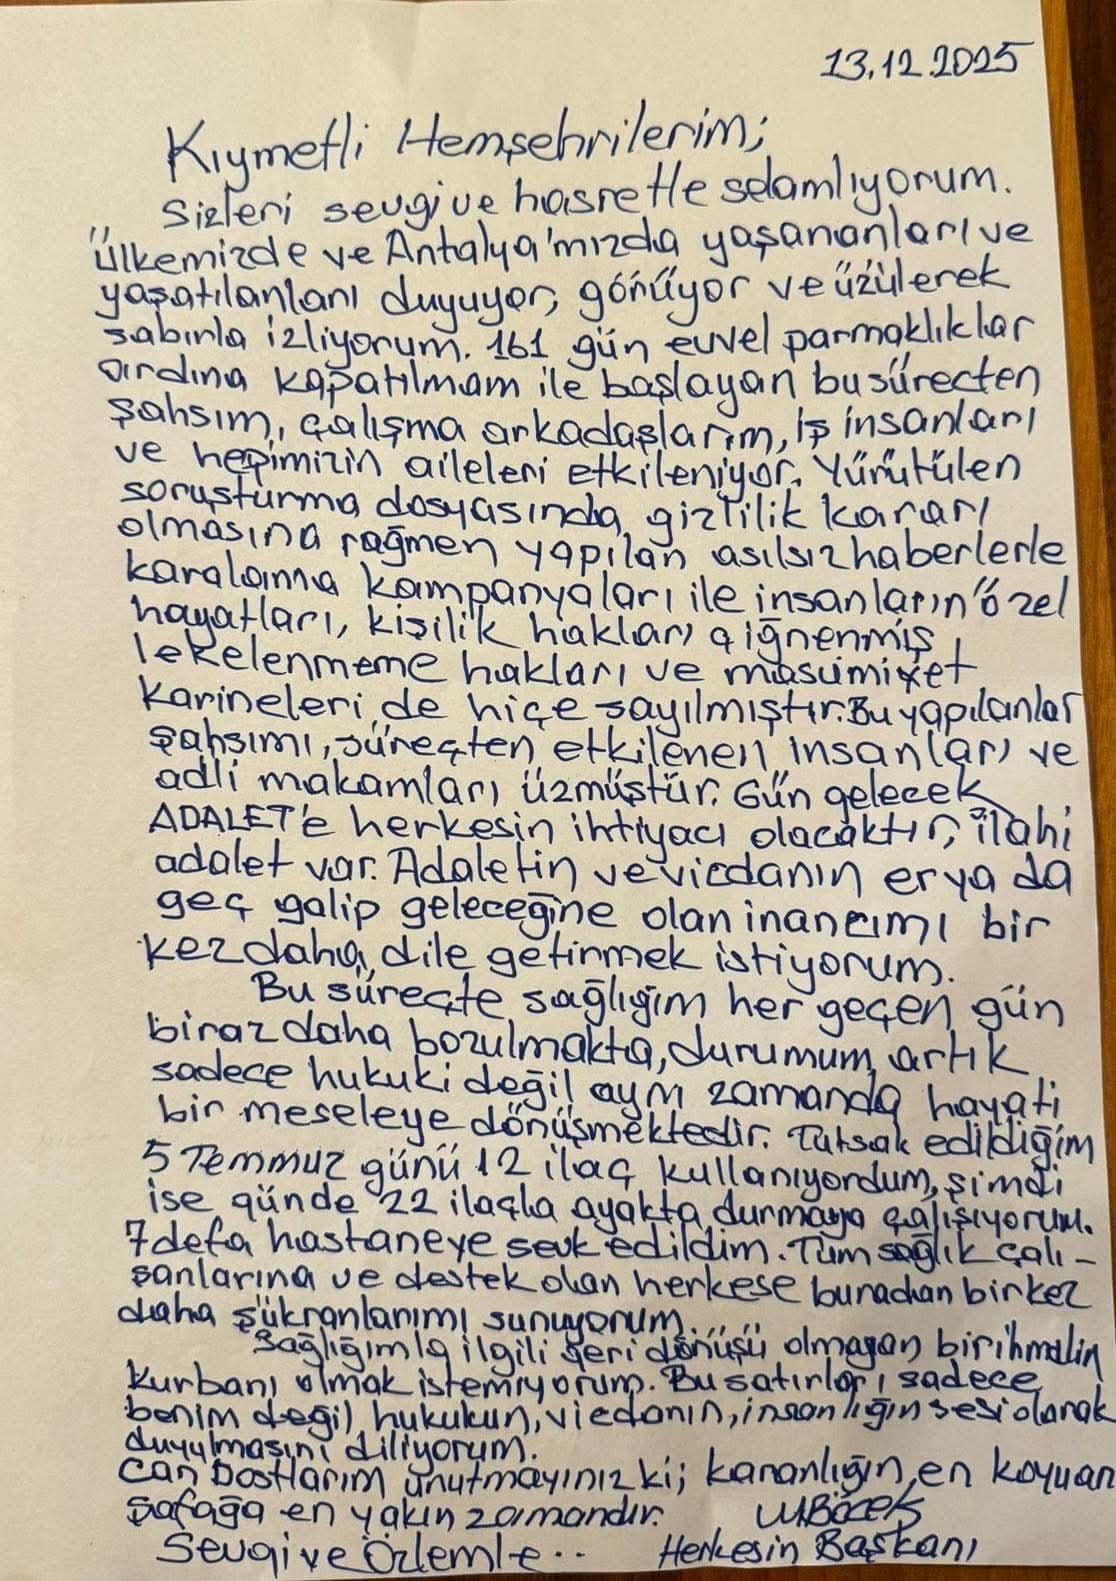 13.12.2025
Kıymetli Hemşehrilerim;
Sizleri sevgi ve hasretle selamlıyorum.
Ülkemizde ve Antalya'mızda yaşananları ve
yaşatılanları duyuyor, görüyor ve üzülerek
sabırla izliyorum. 161 gün evvel parmaklıklar
ardına kapatılmam ile başlayan bu süreçten
şahsım, çalışma arkadaşlarım, iş insanları
ve hepimizin aileleri etkileniyor. Yürütülen
soruşturma dosyasında gizlilik kararı
olmasına rağmen yapılan asılsız haberlerle
karalama kampanyaları ile insanların özel
hayatları, kişilik hakları çiğnenmiş,
lekelenmeme hakları ve masumiyet
karineleri de hiçe sayılmıştır. Bu yapılanlar
şahsımı, süreçten etkilenen insanları ve
adli makamları üzmüştür. Gün gelecek
ADALET'e herkesin ihtiyacı olacaktır, ilahi
adalet var. Adaletin ve vicdanın er ya da
geç galip geleceğine olan inancımı bir
kez daha dile getirmek istiyorum.
Bu süreçte sağlığım her geçen gün
biraz daha bozulmakta, durumum artık
sadece hukuki değil aynı zamanda hayati
bir meseleye dönüşmektedir. Tutsak edildiğim
5 Temmuz günü 12 ilaç kullanıyordum, şimdi
ise günde 22 ilaçla ayakta durmaya çalışıyorum.
7 defa hastaneye sevk edildim. Tüm sağlık çalı-
şanlarına ve destek olan herkese buradan bir kez
daha şükranlarımı sunuyorum.
Sağlığımla ilgili geri dönüşü olmayan bir ihmalin
kurbanı olmak istemiyorum. Bu satırları sadece
benim değil, hukukun, vicdanın, insanlığın sesi olarak
duyulmasını diliyorum.
Can Dostlarım unutmayınız ki; karanlığın en koyu an
şafağa en yakın zamandır.
M Böcek
Sevgi ve Özlemle..
Herkesin Başkanı